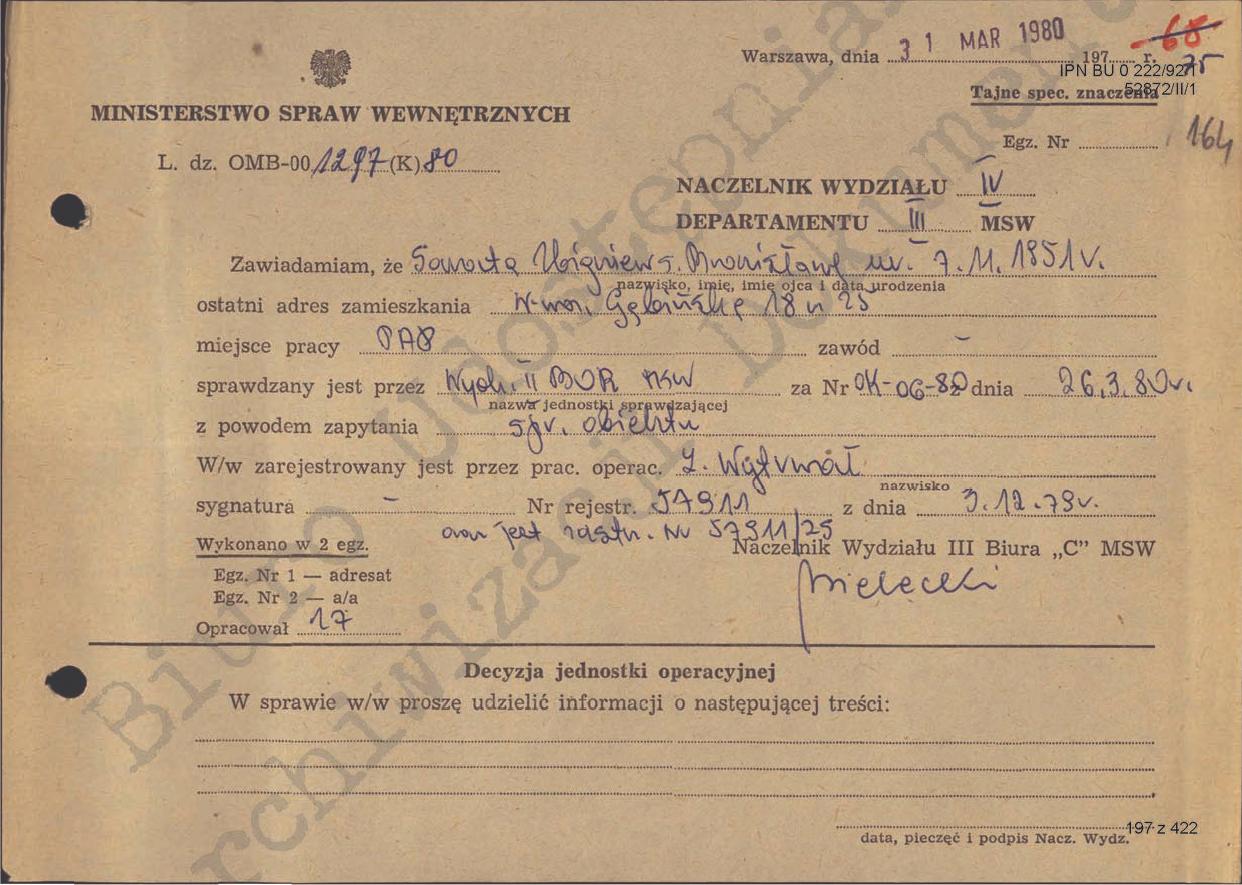 Warszawa, dnia 31 MAR 1980 197 r.
68
75
IPN BU 0 222/927/1
52872/II/1
Tajne spec. znaczenia
MINISTERSTWO SPRAW WEWNĘTRZNYCH
Egz. Nr
164
L. dz. OMB-00 1297 (K) 80
NACZELNIK WYDZIAŁU IV
DEPARTAMENTU III MSW
Zawiadamiam, że Zbigniew s. Bronisława ur. 7.11.1951 r.
nazwisko, imię, imię ojca i data urodzenia
ostatni adres zamieszkania W-wa, 18 m 25
miejsce pracy zawód -
sprawdzany jest przez Wydz. II BOR MSW za Nr OK-06-80 z dnia 26.3.80 r.
nazwa jednostki sprawdzającej
z powodem zapytania spr. obiektu
W/w zarejestrowany jest przez prac. operac.
nazwisko
sygnatura - Nr rejestr. 57911 z dnia 3.12.79 r.
oraz jest zastr. Nr 57911/25
Wykonano w 2 egz.
Naczelnik Wydziału III Biura „C” MSW
Egz. Nr 1 — adresat
Bielecki
Egz. Nr 2 — a/a
Opracował 17
Decyzja jednostki operacyjnej
W sprawie w/w proszę udzielić informacji o następującej treści:
197 z 422
data, pieczęć i podpis Nacz. Wydz.
Biuro Udostępniania
Archiwizacji Dokumentów